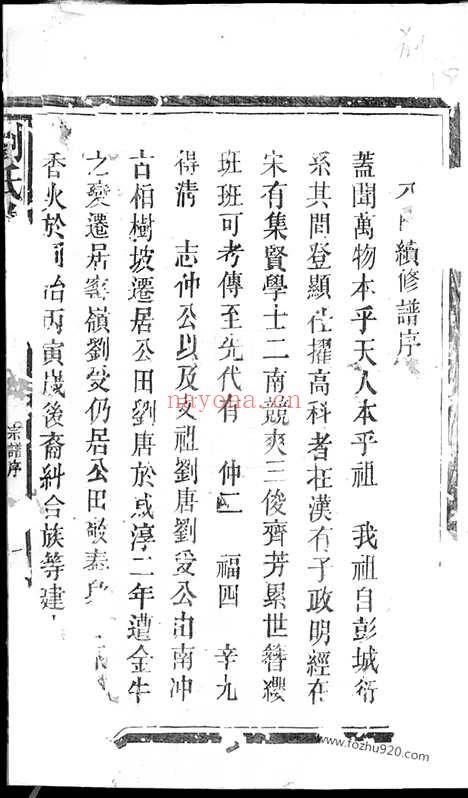 續修譜序
蓋聞萬物本乎天人本乎祖 我祖自彭城衍
系其間登顯仕擢高科者在漢有子政明經在
宋有集賢學士二南競爽三俊齊芳累世簪纓
班班可考傳至先代有 仲二 福四 辛九
得清 志仲公以及支祖劉唐劉受公由南冲
古栢樹坡遷居公田劉唐於咸淳二年遭金牛
之變遷居 嶺劉受仍居公田
香火於同治丙寅歲後裔糾合族等建
劉氏
宗譜序
nayona.cn
www.fozhu920.com